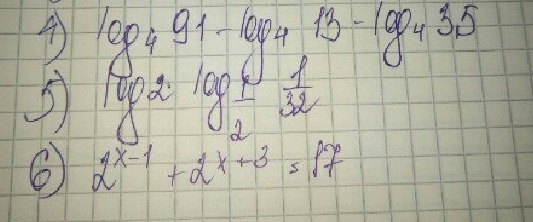 4) log₄ 91 - log₄ 13 - log₄ 35
5) log 2 · log 1/2 1/32
6) 2^(x-1) + 2^(x+3) = 17